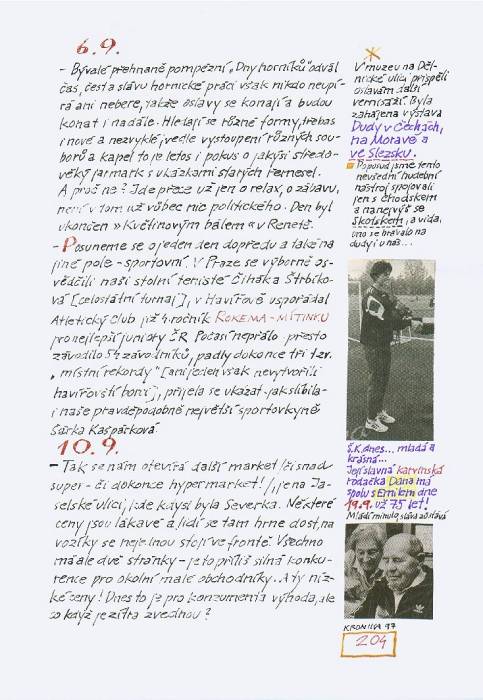 6.9.
- Bývalé přehnaně pompézní „Dny horníků" odvál
čas, čest a slávu hornické práci však nikdo neupí-
rá ani nebere, takže oslavy se konají a budou
konat i nadále. Hledají se různé formy, třebas
i nové a nezvyklé, vedle vystoupení různých sou-
borů a kapel to je letos i pokus o jakýsi středo-
věký jarmark s ukázkami starých řemesel.
A proč ne? Jde přece už jen o relax, o zábavu,
není v tom už vůbec nic politického. Den byl
ukončen » Květinovým bálem « v Renetě.
- Posuneme se o jeden den dopředu a také na
jiné pole - sportovní. V Praze se výborně os-
vědčili naši stolní tenisté Čihák a Štrbíko-
vá [celostátní turnaj], v Havířově uspořádal
Atletický Club již 4. ročník ROKEMA-MÍTINKU
pro nejlepší juniory ČR. Počasí nepřálo přesto
závodilo 54 závodníků, padly dokonce tři tzv.
„místní rekordy" [ani jeden však nevytvořili
havířovští borci], přijela se ukázat - jak slíbila -
i naše pravděpodobně největší sportovkyně
Šárka Kašpárková.
10.9.
- Tak se nám otevírá další market / či snad
super- či dokonce hypermarket! /, je na Ja-
selské ulici, kde kdysi byla Severka. Některé
ceny jsou lákavé a lidí se tam hrne dost, na
vozíky se nejednou stojí ve frontě. Všechno
má ale dvě stránky - je to příliš silná konku-
rence pro okolní malé obchodníky. A ty níz-
ké ceny! Dnes to je pro konzumenta výhoda, ale
co když je zítra zvednou?
V muzeu na Děl-
nické ulici přispěli
oslavám další
vernisáží. Byla
zahájena výstava
Dudy v Čechách,
na Moravě a
ve Slezsku.
Doposud jsme tento
nevšední hudební
nástroj spojovali
jen s Chodskem
a nanejvýš se
Skotskem, a vida,
ono se hrávalo na
dudy i u nás...
Š.K. dnes... mladá a
krásná...
Její slavná karvinská
rodačka Dana má
spolu s Emilem dne
19.9. už 75 let!
Mládí minulo, sláva zůstává
KRONIKA 97
204